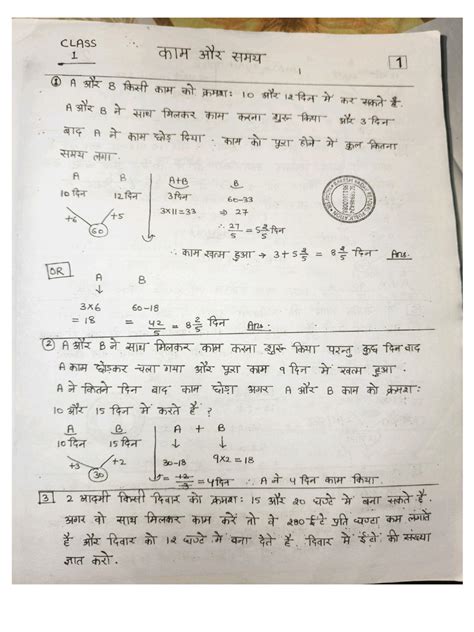 CLASS
1
काम और समय
1
① A और B किसी काम को क्रमशः 10 और 12 दिन में कर सकते हैं.
A और B ने साथ मिलकर काम करना शुरू किया और 3 दिन
बाद A ने काम छोड़ दिया. काम को पुरा होने में कुल कितना
समय लगा.
A B A+B B
10 दिन 12 दिन 3 दिन 60-33
+6 +5 3×11=33 ⇒ 27
60 ∴ 27/5 = 5 2/5 दिन
∴ काम खत्म हुआ → 3+5 2/5 = 8 2/5 दिन Ans.
OR
A B
3×6 60-18
= 18 = 42/5 = 8 2/5 दिन Ans.
② A और B ने साथ मिलकर काम करना शुरू किया परन्तु कुछ दिन बाद
A काम छोड़कर चला गया और पुरा काम 9 दिन में खत्म हुआ.
A ने कितने दिन बाद काम छोड़ा अगर A और B काम को क्रमशः
10 और 15 दिन में करते है ?
A B A + B
10 दिन 15 दिन
+3 +2 30-18 9×2=18
30 = 12/3 = 4 दिन ∴ A ने 4 दिन काम किया.
3 2 आदमी किसी दिवार को क्रमशः 15 और 20 घण्टे में बना सकते है.
अगर वो साथ मिलकर काम करें तो वे 280 ईंटे प्रति घण्टा कम लगाते
है और दिवार को 12 घण्टे में बना देते है. दिवार में ईंटो की संख्या
ज्ञात करो.